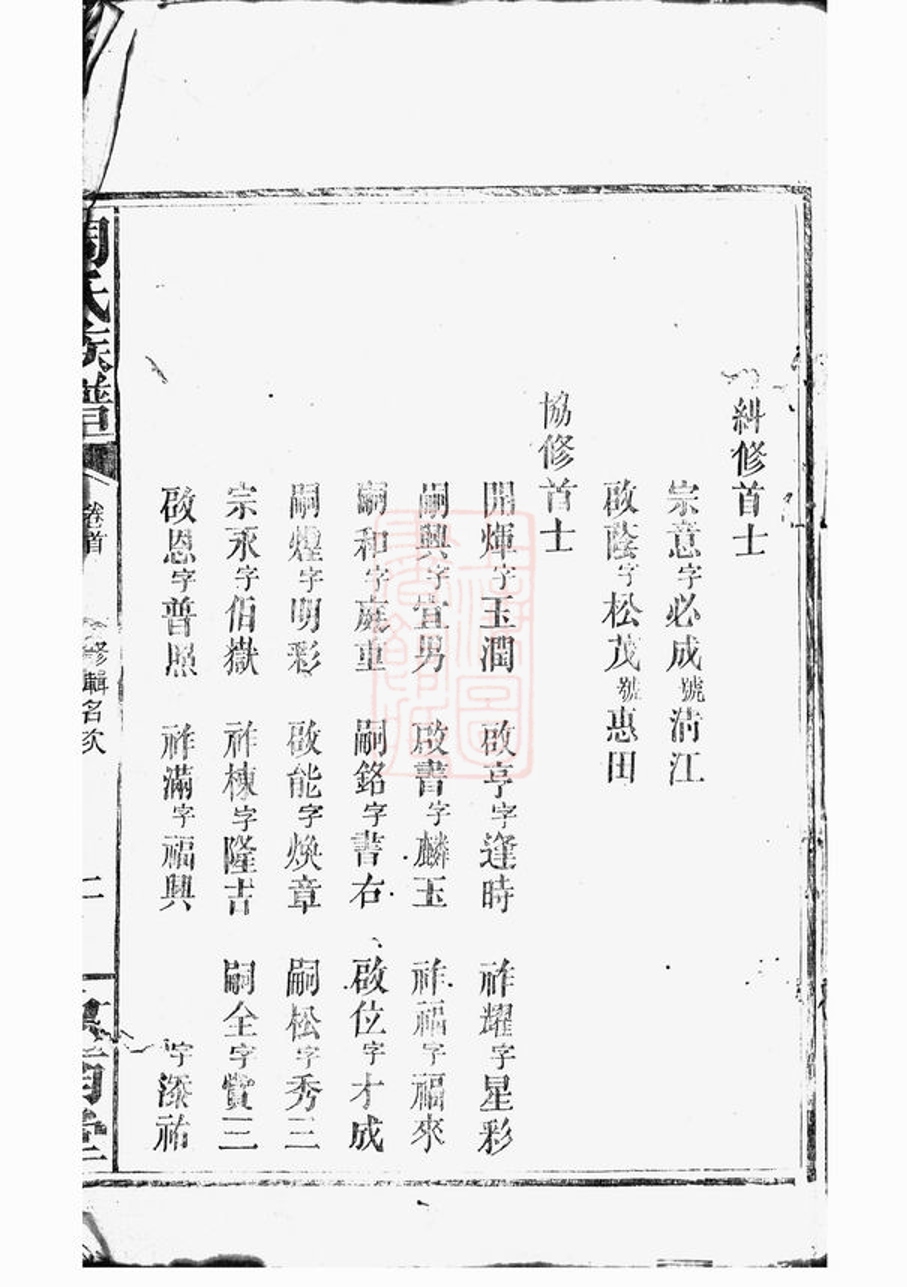 糾修首士
宗意字必成號清江
啟蔭字松茂號惠田
協修首士
開煇字玉潤 啟亨字逢時 祚耀字星彩
嗣興字宜男 啟書字麟玉 祚福字福來
嗣和字庭重 嗣銘字書右 啟位字才成
嗣煌字明彩 啟能字煥章 嗣松字秀三
宗永字佰嶽 祚棟字隆吉 嗣全字贊三
啟恩字普照 祚滿字福興 字添祐
周氏族譜 卷首 修輯名次 二